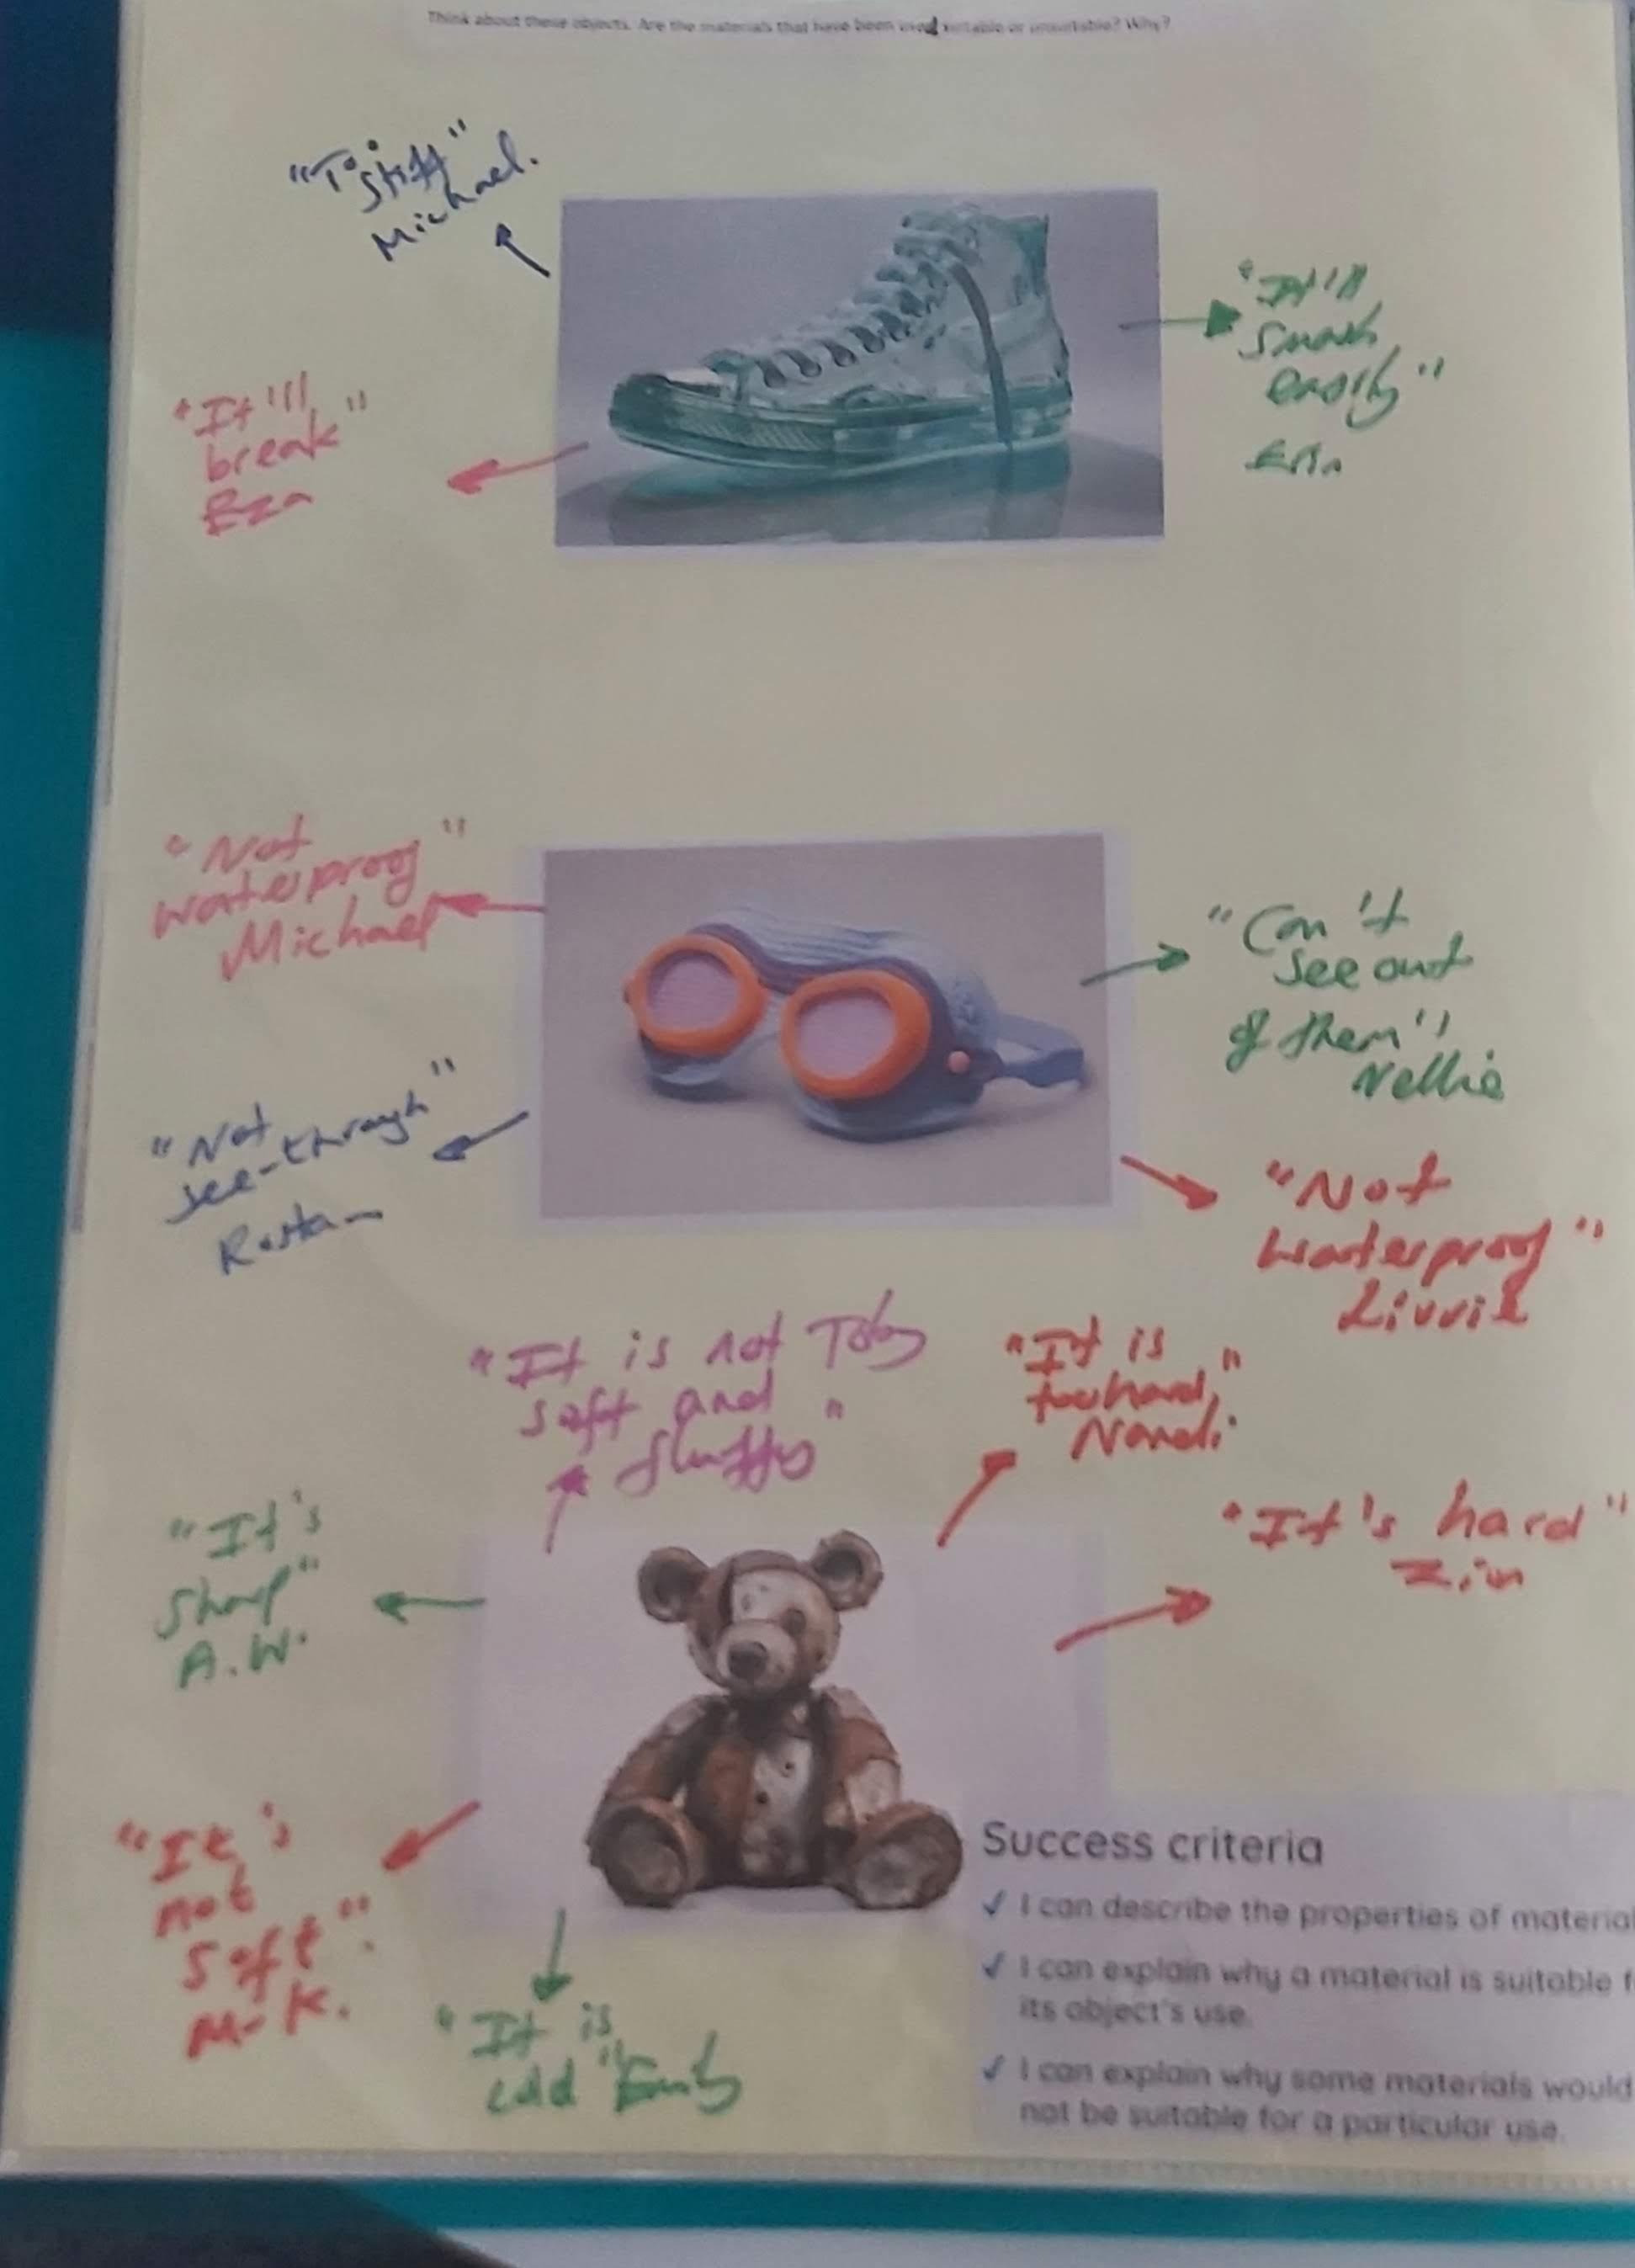 Think about these objects. Are the materials that have been used suitable or unsuitable? Why?
"Too
stiff"
Michael.
"It'll
smash
easily"
Erin
"It'll
break"
Eza
"Not
waterproof"
Michael
"Can't
see out
of them"
Nellie
"Not
see-through"
"Not
waterproof"
"It is not Toby
soft and
fluffy"
"It is
too hard"
Nandi
"It's hard"
"It's
sharp"
A.W.
"It's
not
soft".
M-K.
"It is
cold" Emily
Success criteria
✓ I can describe the properties of material
✓ I can explain why a material is suitable f
its object's use.
✓ I can explain why some materials would
not be suitable for a particular use.